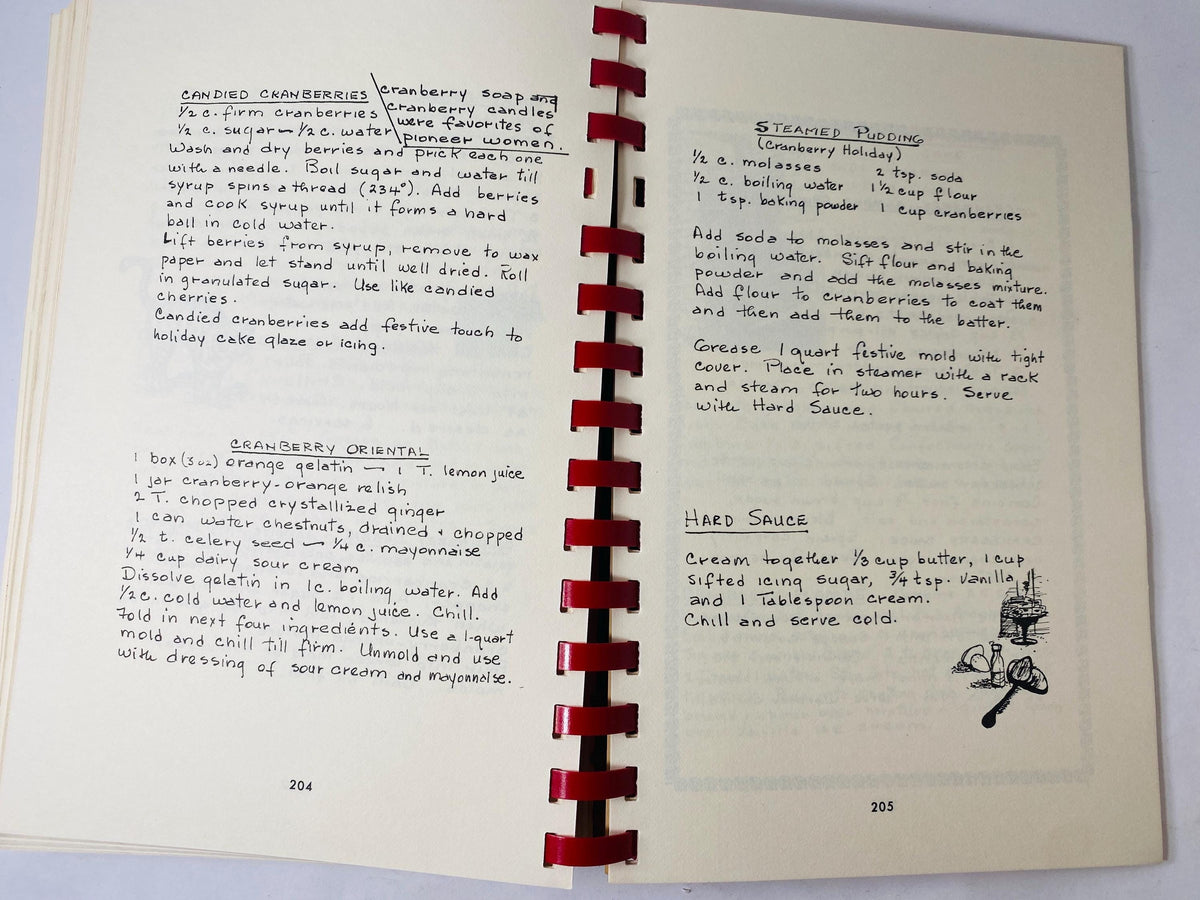 CANDIED CRANBERRIES
cranberry soap and
cranberry candles
were favorites of
pioneer women.
1/2 c. firm cranberries
1/2 c. sugar — 1/2 c. water
Wash and dry berries and prick each one
with a needle. Boil sugar and water till
syrup spins a thread (234°). Add berries
and cook syrup until it forms a hard
ball in cold water.
Lift berries from syrup, remove to wax
paper and let stand until well dried. Roll
in granulated sugar. Use like candied
cherries.
Candied cranberries add festive touch to
holiday cake glaze or icing.
CRANBERRY ORIENTAL
1 box (3 oz) orange gelatin — 1 T. lemon juice
1 jar cranberry-orange relish
2 T. chopped crystallized ginger
1 can water chestnuts, drained + chopped
1/2 t. celery seed — 1/4 c. mayonnaise
1/4 cup dairy sour cream
Dissolve gelatin in 1c. boiling water. Add
1/2 c. cold water and lemon juice. Chill.
Fold in next four ingredients. Use a 1-quart
mold and chill till firm. Unmold and use
with dressing of sour cream and mayonnaise.
204
STEAMED PUDDING
(Cranberry Holiday)
1/2 c. molasses 2 tsp. soda
1/2 c. boiling water 1 1/2 cup flour
1 tsp. baking powder 1 cup cranberries
Add soda to molasses and stir in the
boiling water. Sift flour and baking
powder and add the molasses mixture.
Add flour to cranberries to coat them
and then add them to the batter.
Grease 1 quart festive mold with tight
cover. Place in steamer with a rack
and steam for two hours. Serve
with Hard Sauce.
HARD SAUCE
Cream together 1/3 cup butter, 1 cup
sifted icing sugar, 3/4 tsp. vanilla
and 1 Tablespoon cream.
Chill and serve cold.
205